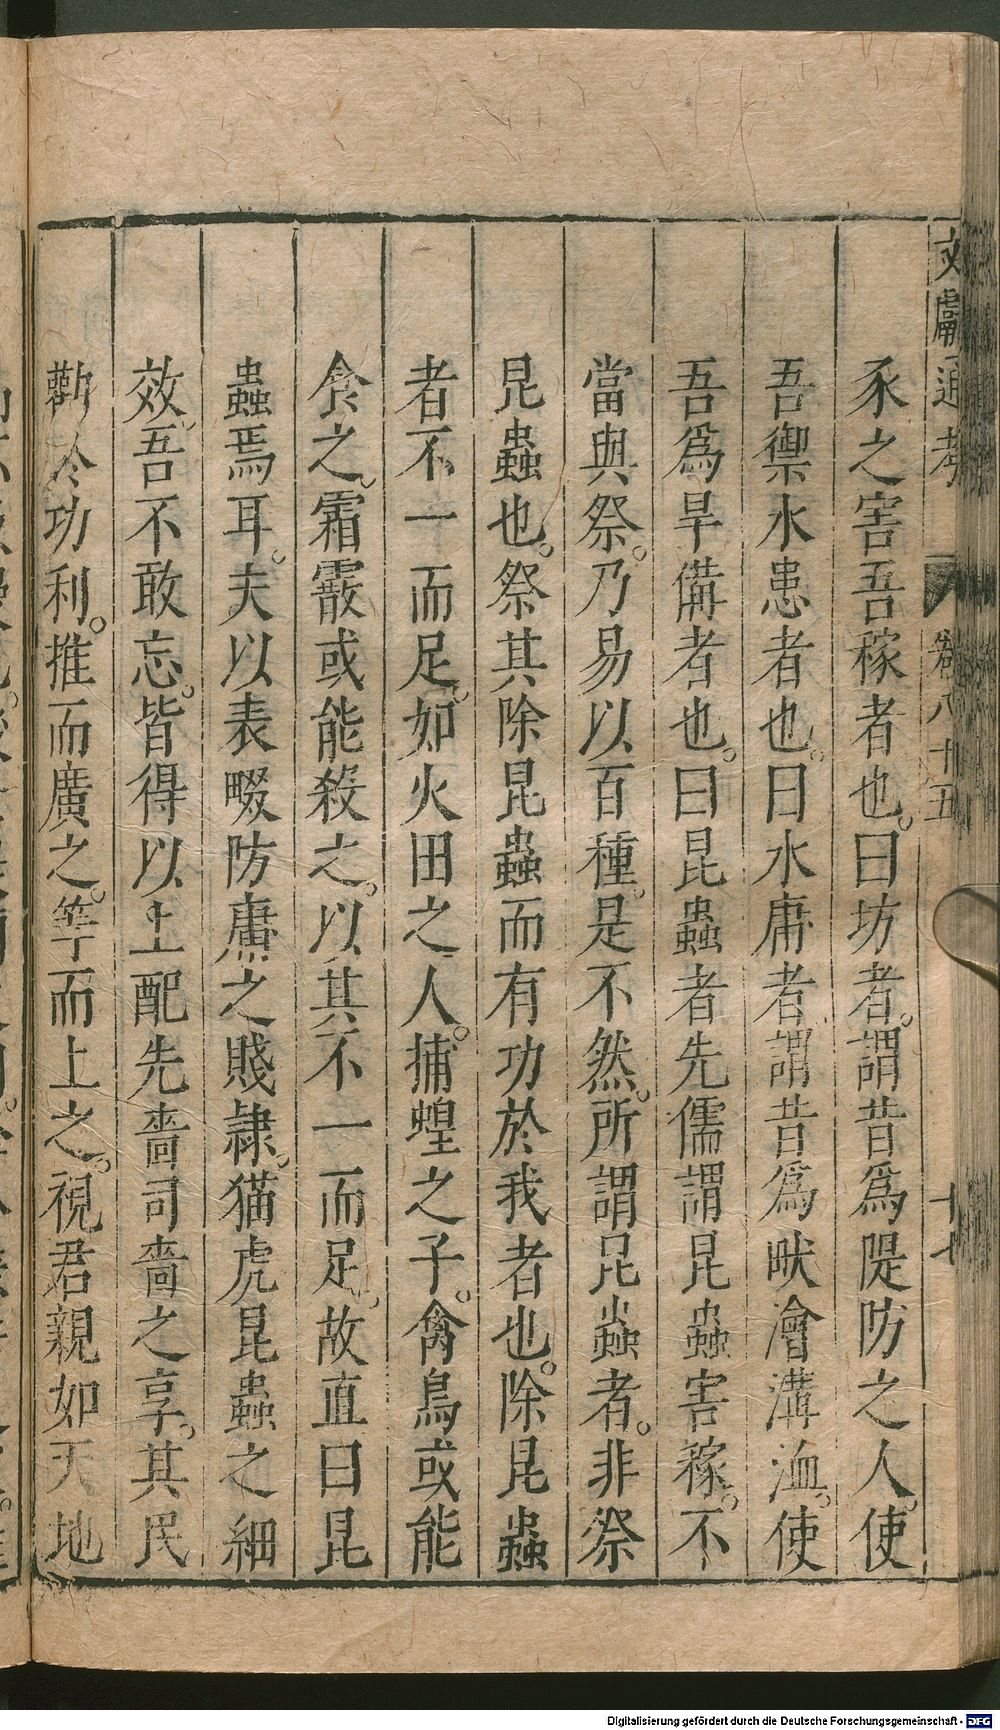 文獻通考 卷八十五 十七
豕之害吾稼者也。曰坊者。謂昔爲隄防之人。使
吾禦水患者也。曰水庸者謂昔爲畎澮溝洫。使
吾爲旱備者也。曰昆蟲者先儒謂昆蟲害稼。不
當與祭。乃易以百種。是不然。所謂昆蟲者。非祭
昆蟲也。祭其除昆蟲而有功於我者也。除昆蟲
者不一而足。如火田之人。捕蝗之子。禽鳥或能
食之。霜霰或能殺之。以其不一而足。故直曰昆
蟲焉耳。夫以表畷防庸之賤隷。猫虎昆蟲之細
效。吾不敢忘。皆得以上配先嗇司嗇之享。其民
勸於功利。推而廣之。等而上之。視君親如天地
Digitalisierung gefördert durch die Deutsche Forschungsgemeinschaft - DFG